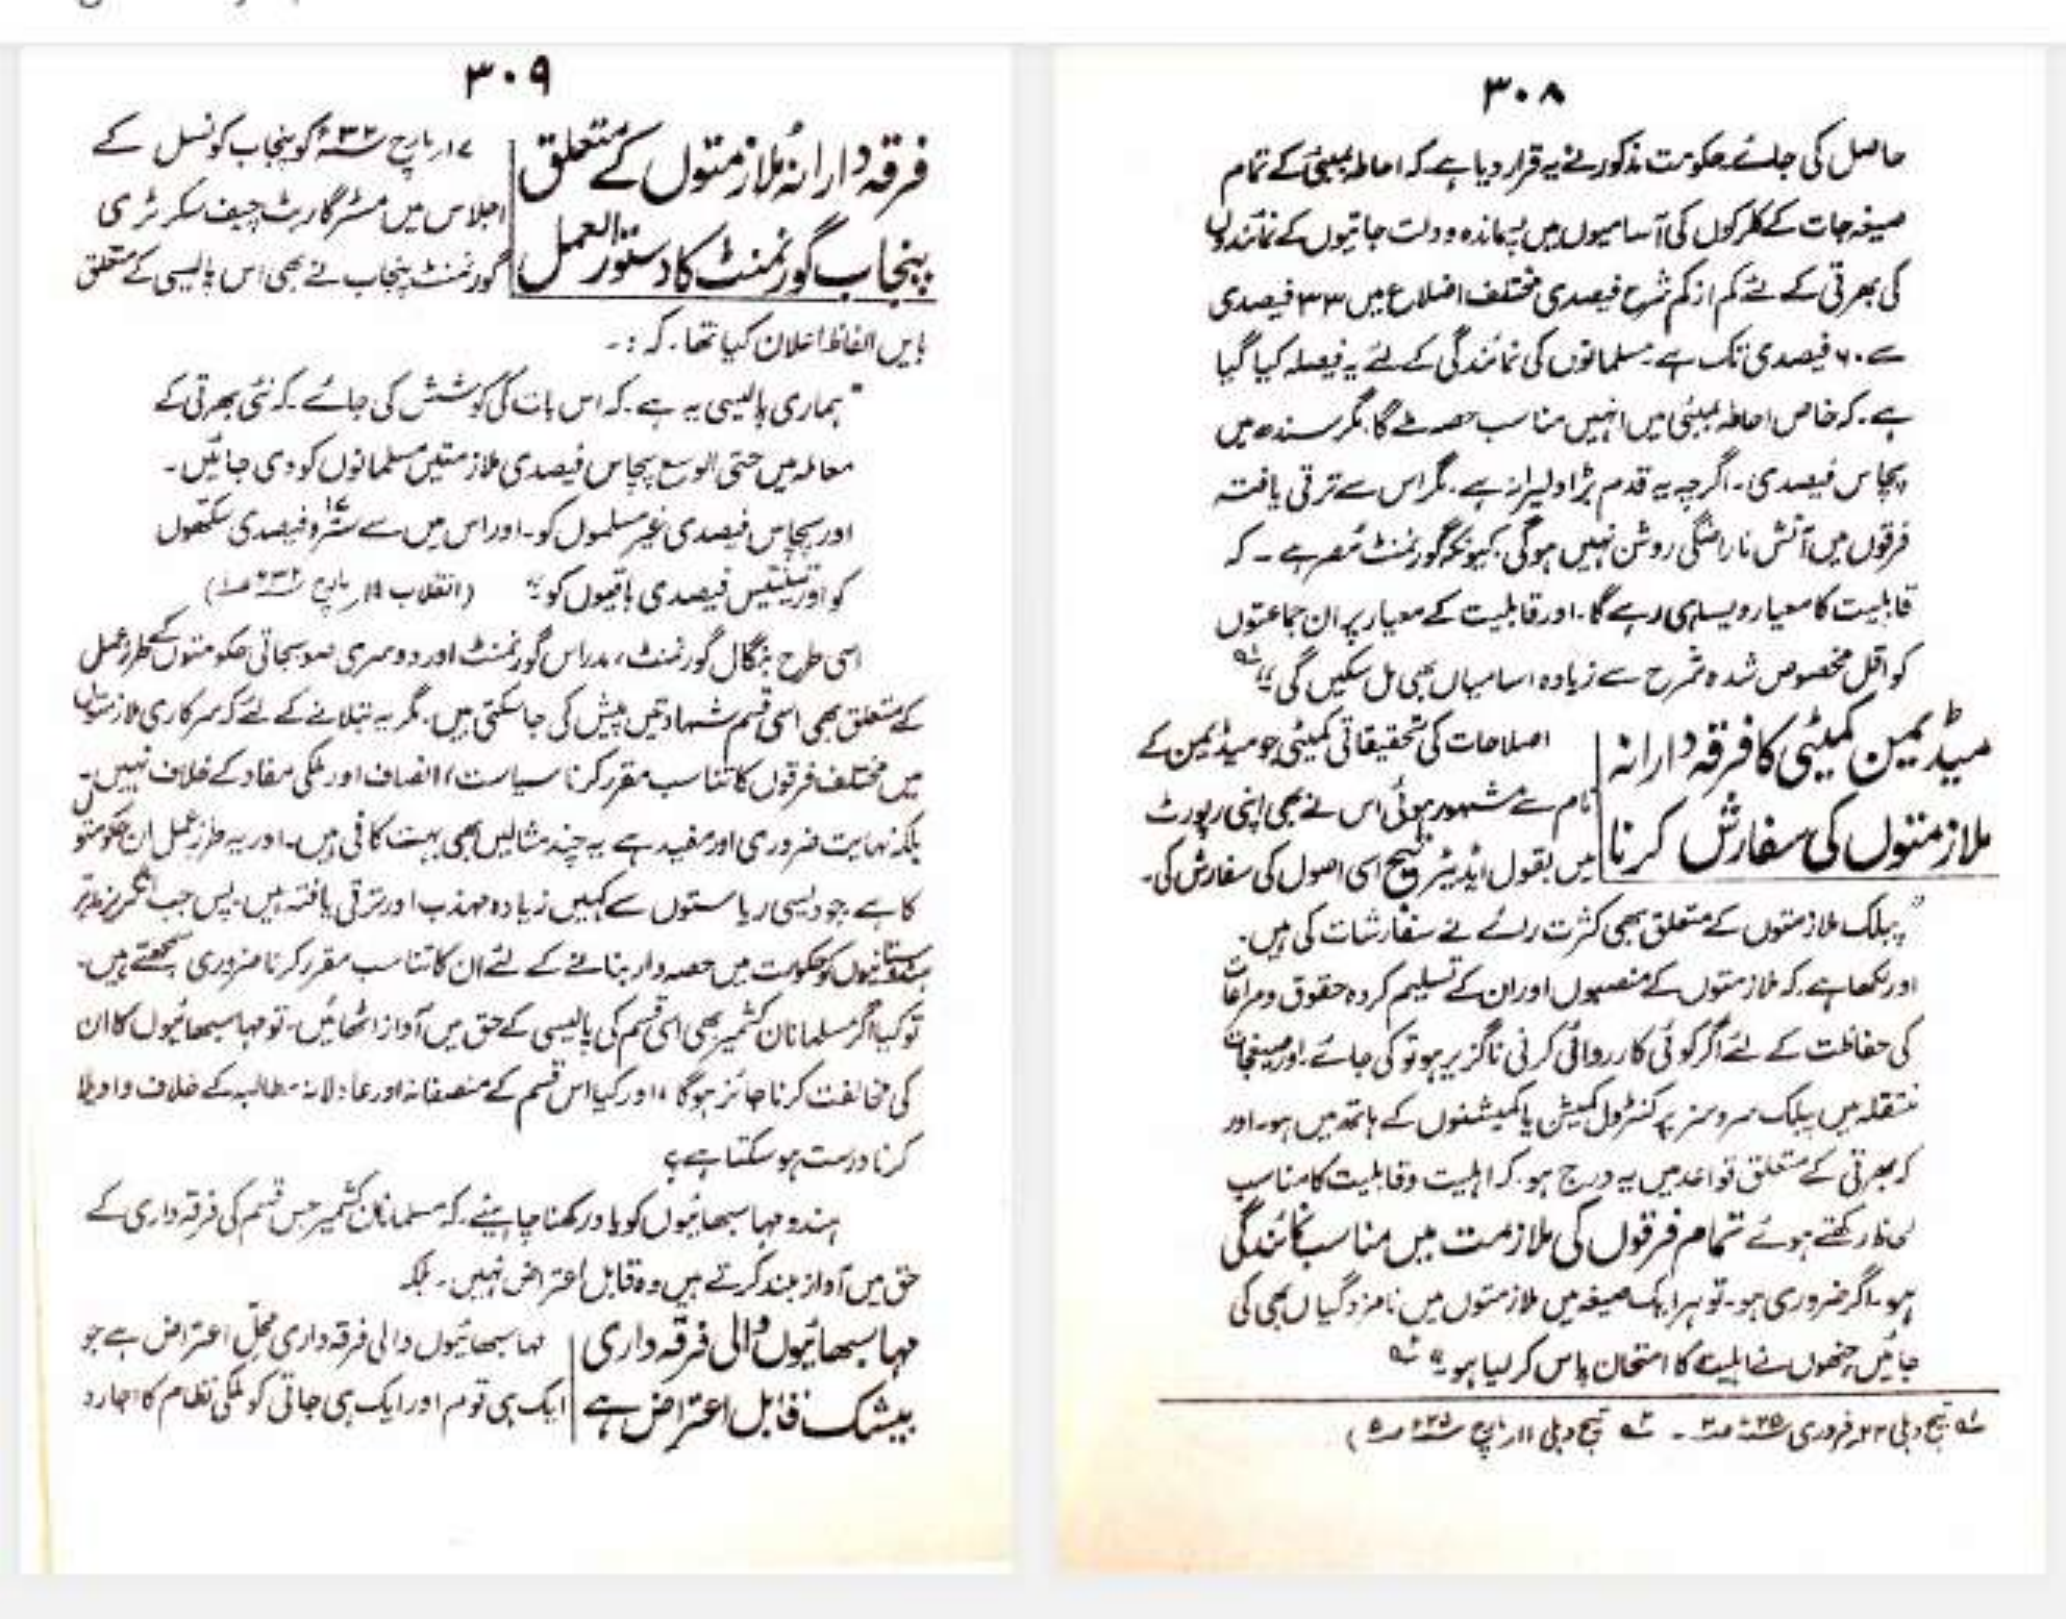 ۳۰۸
حاصل کی جائے۔ حکومت مذکور نے یہ قرار دیا ہے کہ احاطہ بمبئی کے تمام
صیغہ جات کے کلرکوں کی آسامیوں میں پسماندہ و دلت جاتیوں کے نمائندوں
کی بھرتی کے لئے کم از کم شرح فیصدی مختلف اضلاع میں ۳۳ فیصدی
سے ۶۰ فیصدی تک ہے۔ مسلمانوں کی نمائندگی کے لئے یہ فیصلہ کیا گیا
ہے۔ کہ خاص احاطہ بمبئی میں انہیں مناسب حصہ ملے گا۔ مگر سندھ میں
پچاس فیصدی۔ اگرچہ یہ قدم بڑا دلیرانہ ہے۔ مگر اس سے ترقی یافتہ
فرقوں میں آتش ناراضگی روشن نہیں ہوگی۔ کیونکہ گورنمنٹ مُصر ہے۔ کہ
قابلیت کا معیار ویسا ہی رہے گا۔ اور قابلیت کے معیار پر ان جماعتوں
کو اقل مخصوص شدہ شرح سے زیادہ اسامیاں بھی مل سکیں گی؛؛ لہ
میڈیمین کمیٹی کا فرقہ دارانہ
ملازمتوں کی سفارش کرنا
اصلاحات کی تحقیقاتی کمیٹی جو میڈیمین کے
نام سے مشہور ہوئی اس نے بھی اپنی رپورٹ
میں بقول ایڈیٹر تیج اسی اصول کی سفارش کی۔
"پبلک ملازمتوں کے متعلق بھی کثرت رائے نے سفارشات کی ہیں۔
اور لکھا ہے۔ کہ ملازمتوں کے منصبوں اور ان کے تسلیم کردہ حقوق و مراعات
کی حفاظت کے لئے اگر کوئی کارروائی کرنی ناگزیر ہو تو کی جائے۔ اور صیغجات
منتقلہ میں پبلک سروسز پر کنٹرول کمیشن یا کمیشنوں کے ہاتھ میں ہو۔ اور
کہ بھرتی کے متعلق قواعد میں یہ درج ہو۔ کہ اہلیت و قابلیت کا مناسب
لحاظ رکھتے ہوئے تمام فرقوں کی ملازمت میں مناسب نمائندگی
ہو۔ اگر ضروری ہو۔ تو ہر ایک صیغہ میں ملازمتوں میں نامزدگیاں بھی کی
جائیں جنھوں نے قابلیت کا امتحان پاس کر لیا ہو۔"
لہ تیج دہلی ۲۳ فروری ۱۹۲۵ء ۔ تیج دہلی ۱۱ مارچ ۱۹۲۵ء ص۵)
۳۰۹
فرقہ دارانہ ملازمتوں کے متعلق
پنجاب گورنمنٹ کا دستورالعمل
۱۷ مارچ ۱۹۳۲ء کو پنجاب کونسل کے
اجلاس میں مسٹر گارٹ چیف سکرٹری
گورنمنٹ پنجاب نے بھی اس پالیسی کے متعلق
بایں الفاظ اعلان کیا تھا۔ کہ :۔
"ہماری پالیسی یہ ہے۔ کہ اس بات کی کوشش کی جائے۔ کہ نئی بھرتی کے
معاملہ میں حتی الوسع پچاس فیصدی ملازمتیں مسلمانوں کو دی جائیں۔
اور پچاس فیصدی غیر مسلموں کو۔ اور اس میں سے سترہ ۱۷ فیصدی سکھوں
کو اور تینتیس فیصدی باقیوں کو"؛ (انقلاب ۱۹ مارچ ۱۹۳۲ء)
اسی طرح بنگال گورنمنٹ، مدراس گورنمنٹ اور دوسری صوبجاتی حکومتوں کے طرز عمل
کے متعلق بھی اسی قسم شہادتیں پیش کی جا سکتی ہیں۔ مگر یہ بتلانے کے لئے کہ سرکاری ملازمتوں
میں مختلف فرقوں کا تناسب مقرر کرنا سیاست، انصاف اور ملکی مفاد کے خلاف نہیں۔
بلکہ نہایت ضروری اور مفید ہے یہ چند مثالیں بھی بہت کافی ہیں۔ اور یہ طرز عمل ان حکومتوں
کا ہے۔ جو دیسی ریاستوں سے کہیں زیادہ مہذب اور ترقی یافتہ ہیں۔ پس جب انگریز مدبر
ہندوستانیوں کو حکومت میں حصہ دار بنانے کے لئے ان کا تناسب مقرر کرنا ضروری سمجھتے ہیں۔
تو کیا اگر مسلمانان کشمیر بھی اسی قسم کی پالیسی کے حق میں آواز اٹھائیں۔ تو مہاسبھائیوں کا ان
کی مخالفت کرنا جائز ہوگا، اور کیا اس قسم کے منصفانہ اور عادلانہ مطالبہ کے خلاف واویلا
کرنا درست ہو سکتا ہے؟
ہندو مہاسبھائیوں کو یاد رکھنا چاہیئے۔ کہ مسلمانان کشمیر جس قسم کی فرقہ داری کے
حق میں آواز بلند کرتے ہیں وہ قابل اعتراض نہیں۔ بلکہ
مہاسبھائیوں والی فرقہ داری
بیشک قابل اعتراض ہے
مہاسبھائیوں والی فرقہ داری محلِ اعتراض ہے جو
ایک ہی قوم اور ایک ہی جاتی کو ملکی نظام کا اجارہ